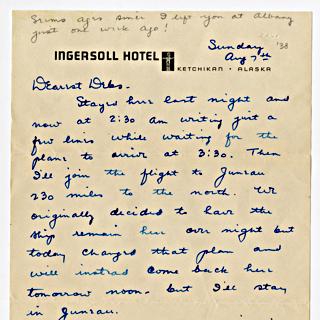 Seems ages since I left you at Albany
just one week ago!
Sunday
Aug 7th '38
INGERSOLL HOTEL
KETCHIKAN · ALASKA
Dearest Debs-
Stayed here last night and
now at 2:30 am writing just a
few lines while waiting for the
plane to arrive at 3:30. Then
I'll join the flight to Juneau
230 miles to the north. We
originally decided to have the
ship remain here over night but
today changed that plan and
will instead come back here
tomorrow noon. but I'll stay
in Juneau.